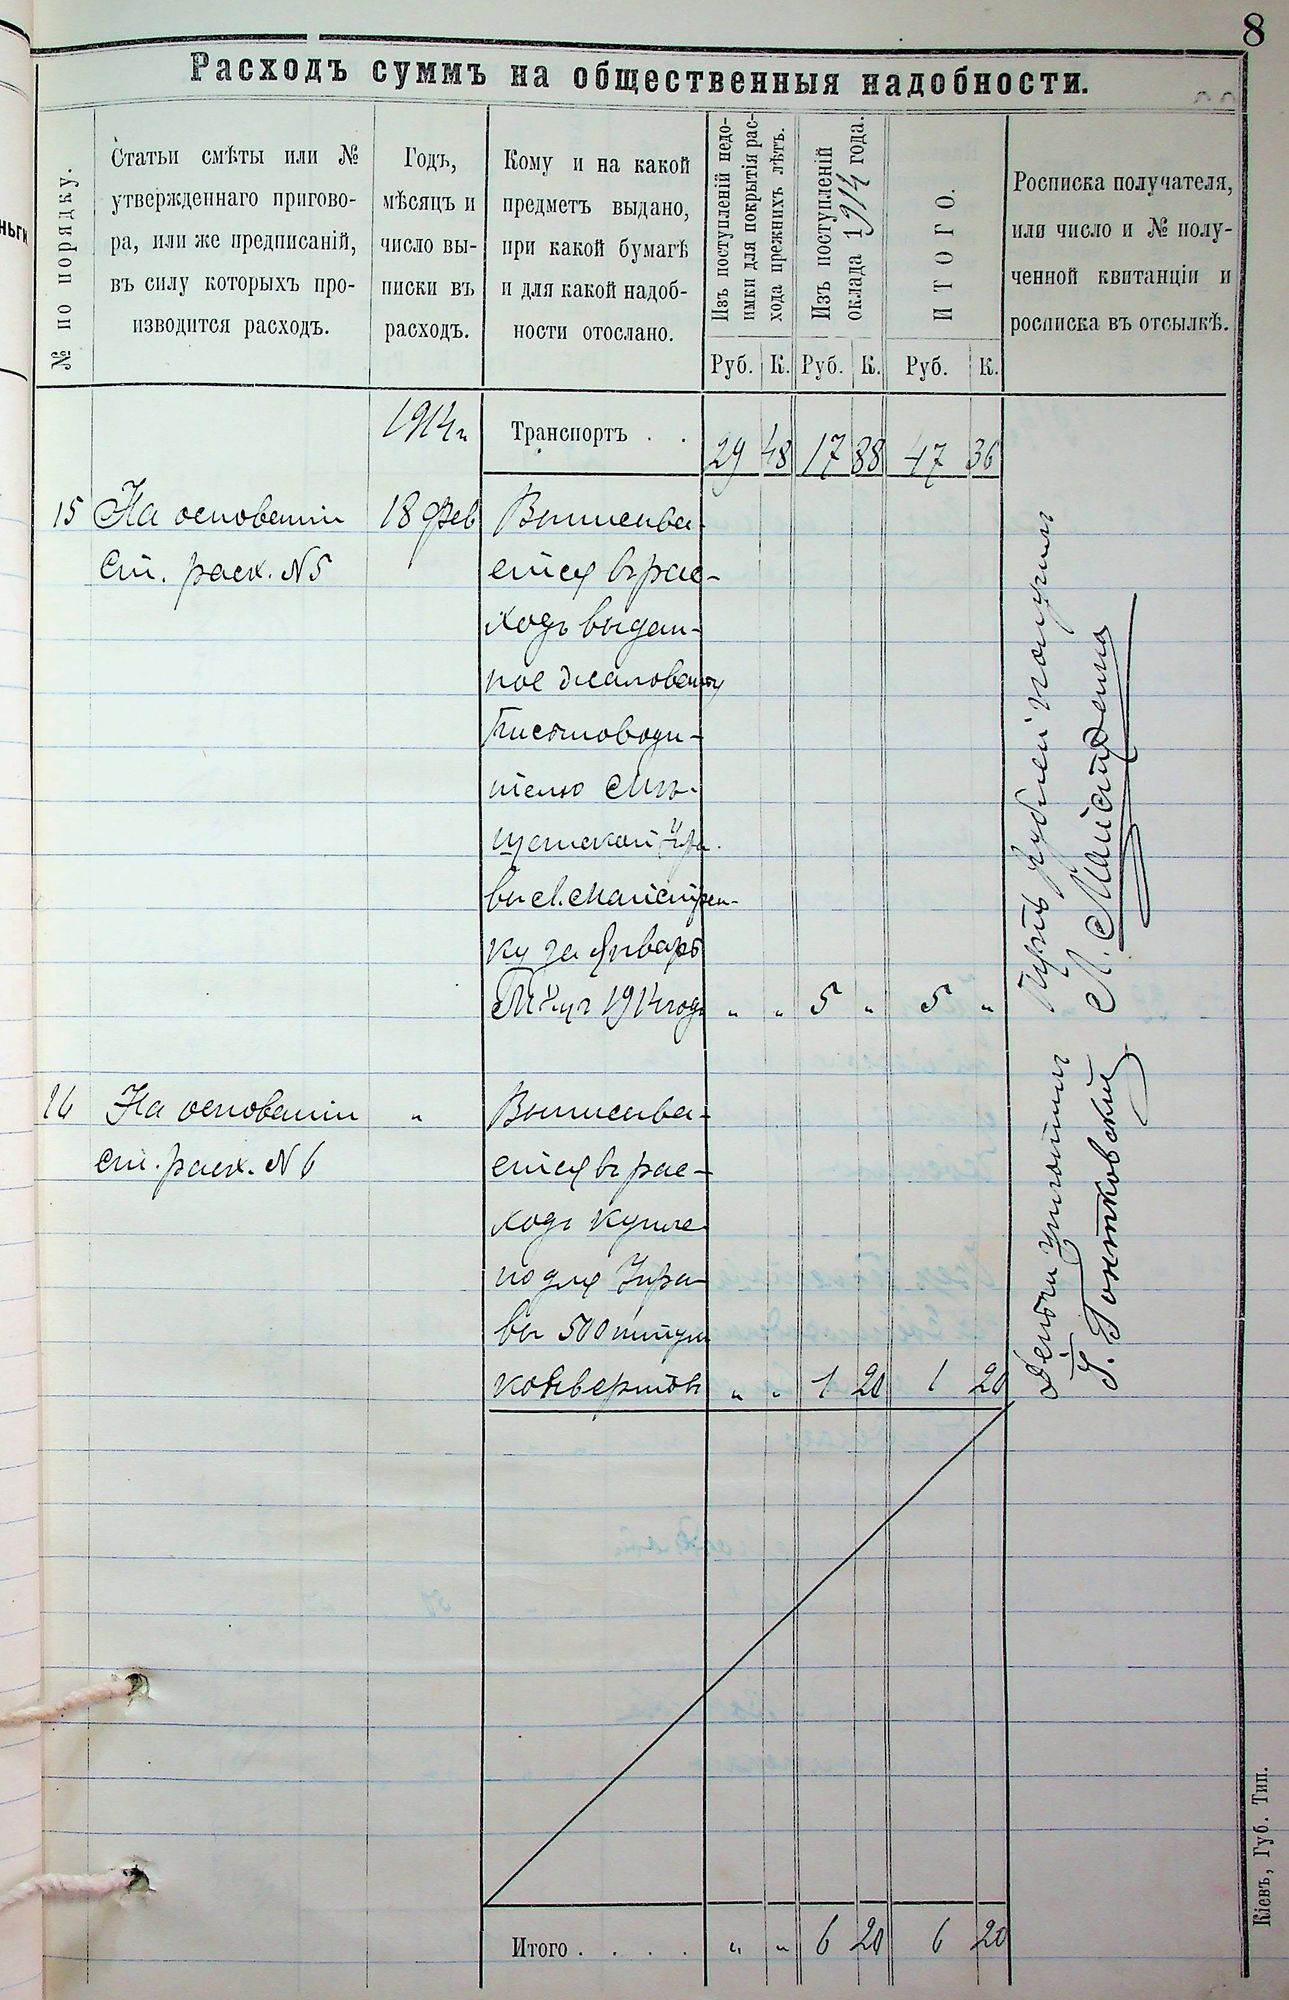 8
Расходъ суммъ на общественныя надобности.
№ по порядку.
Статьи смѣты или №
утвержденнаго пригово-
ра, или же предписаній,
въ силу которыхъ про-
изводится расходъ.
Годъ,
мѣсяцъ и
число вы-
писки въ
расходъ.
Кому и на какой
предметъ выдано,
при какой бумагѣ
и для какой надоб-
ности отослано.
Изъ поступленій недо-
имки для покрытія рас-
хода прежнихъ лѣтъ.
Изъ поступленій
оклада 1914 года.
ИТОГО.
Росписка получателя,
или число и № полу-
ченной квитанціи и
росписка въ отсылкѣ.
Руб. К. Руб. К. Руб. К.
1914 г. Транспортъ . . 29 48 17 88 47 36
15 На основаніи 18 Фев Выписыва-
Ст. расх. № 5 ется въ рас-
ходъ выдан-
ное жалованье
Письмоводи-
телю Мѣ-
щанской Упра-
вы Л. Майстрен-
ку за Январь
1914 года „ „ 5 „ 5 „
Пять рублей получилъ
Л. Майстренко
16 На основаніи „ Выписыва-
ст. расх. № 6 ется въ рас-
ходъ купле-
но для Упра-
вы 500 штукъ
конвертовъ „ „ 1 20 1 20
Деньги уплотилъ
Г. Гонтковскій
Итого . . . . „ „ 6 20 6 20
Кіевъ, Губ. Тип.